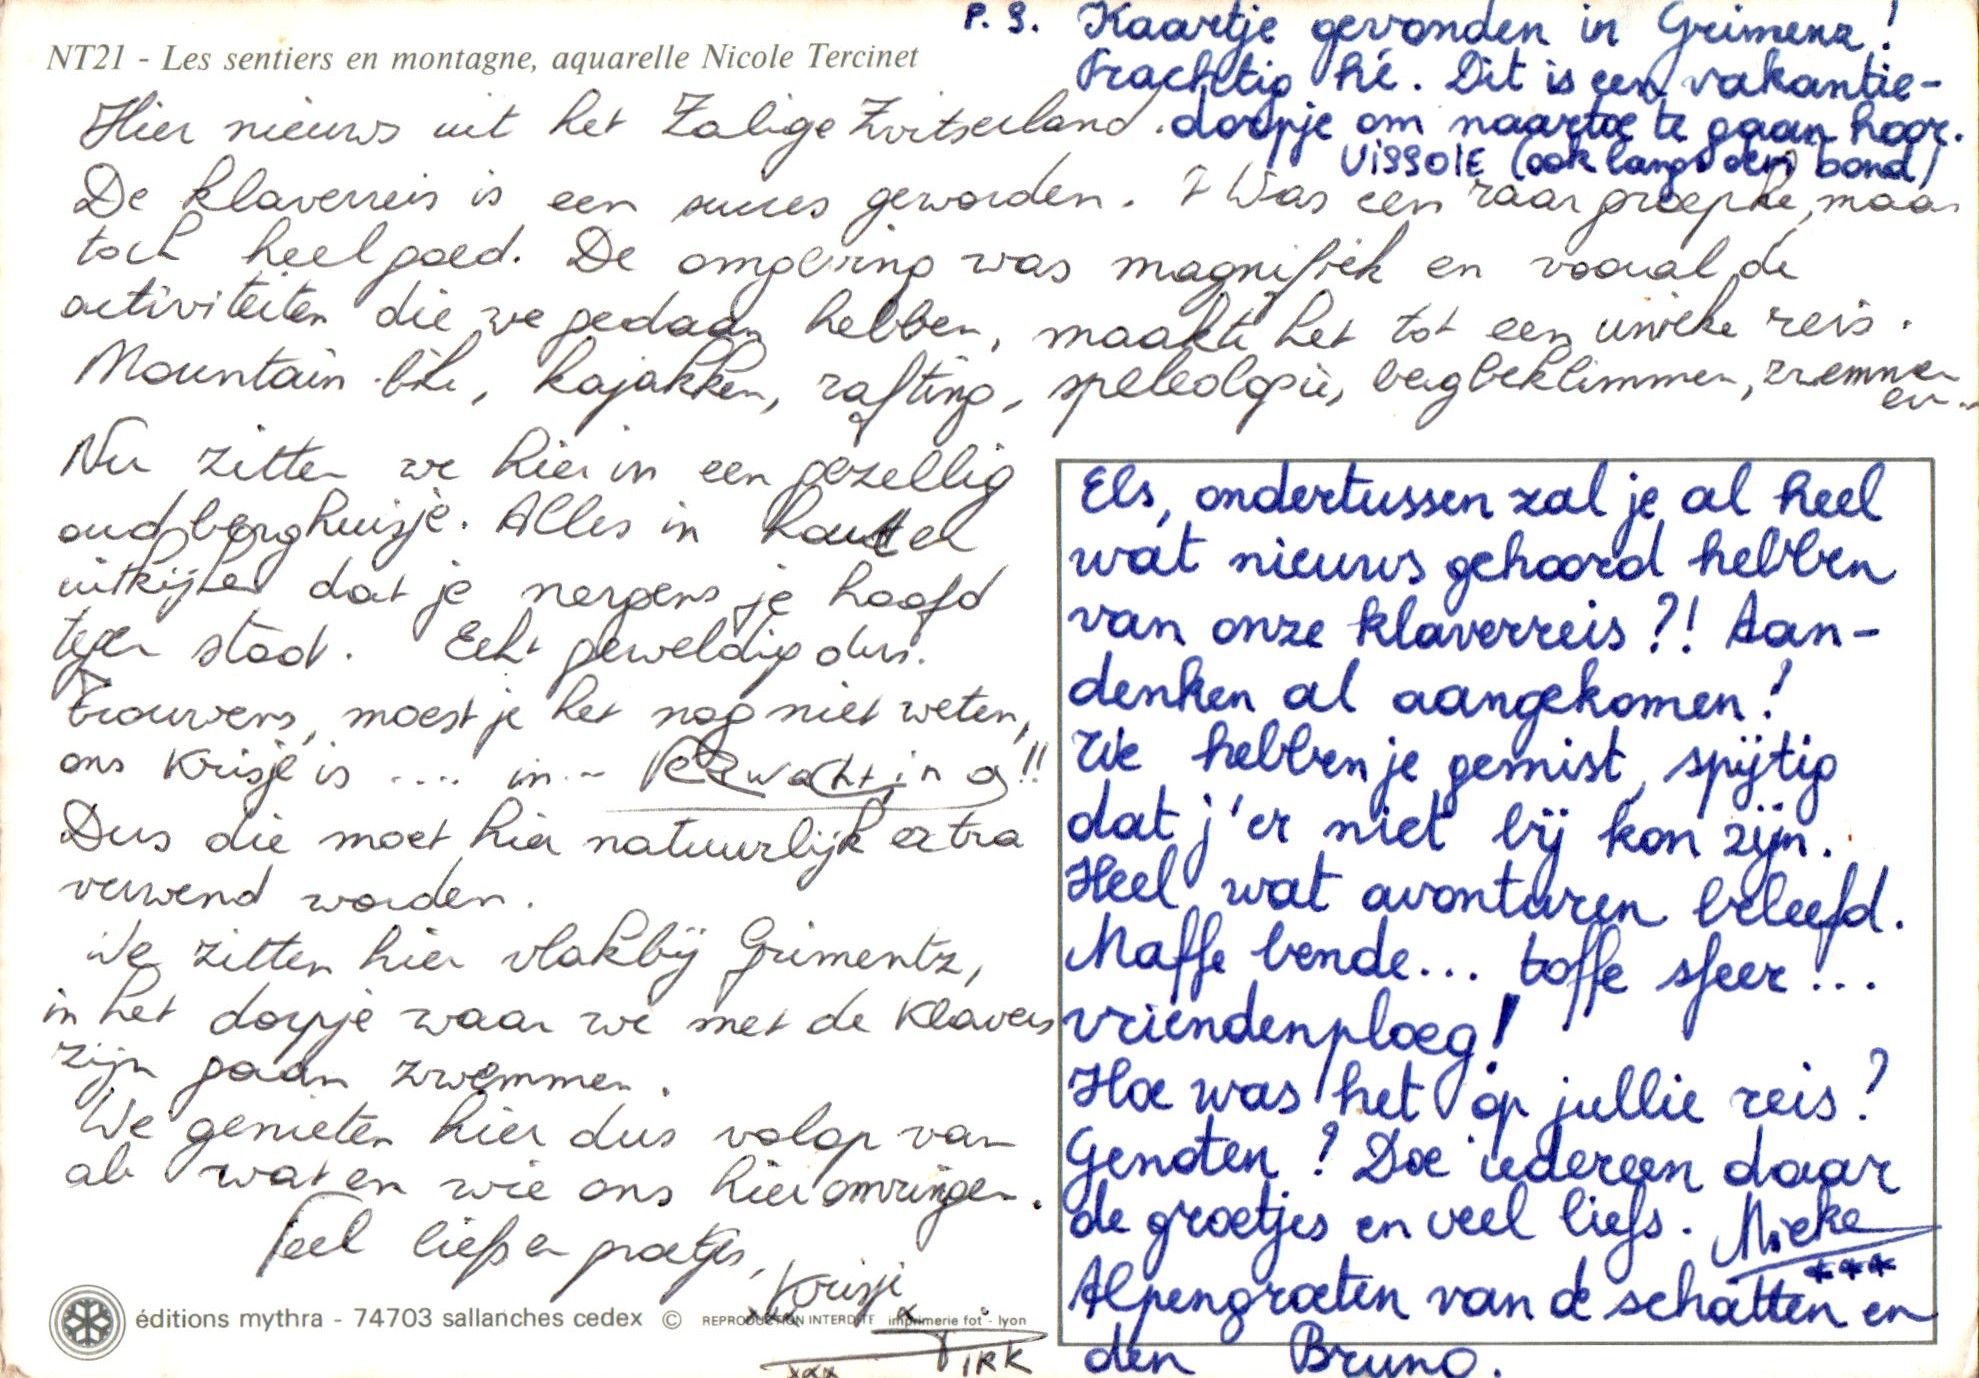 NT21 - Les sentiers en montagne, aquarelle Nicole Tercinet
P.S. Kaartje gevonden in Grimenz!
Prachtig hé. Dit is een vakantie-
dorpje om naartoe te gaan hoor.
VISSOIE (ook langs den bond)
Hier nieuws uit het Zalige Zwitserland.
De klaverreis is een succes geworden. 't Was een raar groepke, maar
toch heel goed. De omgeving was magnifiek en vooral de
activiteiten die we gedaan hebben, maakte het tot een unieke reis.
Mountain bike, kajakken, rafting, speleologie, bergbeklimmen, zwemmen
en...
Nu zitten we hier in een gezellig
oud berghuisje. Alles in hout en
uitkijken dat je nergens je hoofd
tegen stoot. Echt geweldig dus.
Trouwens, moest je het nog niet weten,
ons Krisje is .... in ... Verwachting!!
Dus die moet hier natuurlijk extra
verwend worden.
We zitten hier vlakbij Grimentz,
in het dorpje waar we met de Klavers
zijn gaan zwemmen.
We genieten hier dus volop van
al wat en wie ons hier omringen.
Veel liefs en groetjes,
Krisje
xxx x
DIRK
xxx
Els, ondertussen zal je al heel
wat nieuws gehoord hebben
van onze klaverreis?! Aan-
denken al aangekomen!
We hebben je gemist, spijtig
dat j'er niet bij kon zijn.
Heel wat avonturen beleefd.
Maffe bende... toffe sfeer...
vriendenploeg!
Hoe was het op jullie reis?
Genoten? Doe iedereen daar
de groetjes en veel liefs. Mieke
***
Alpengroeten van de schatten en
den Bruno.
éditions mythra - 74703 sallanches cedex © REPRODUCTION INTERDITE imprimerie fot - lyon